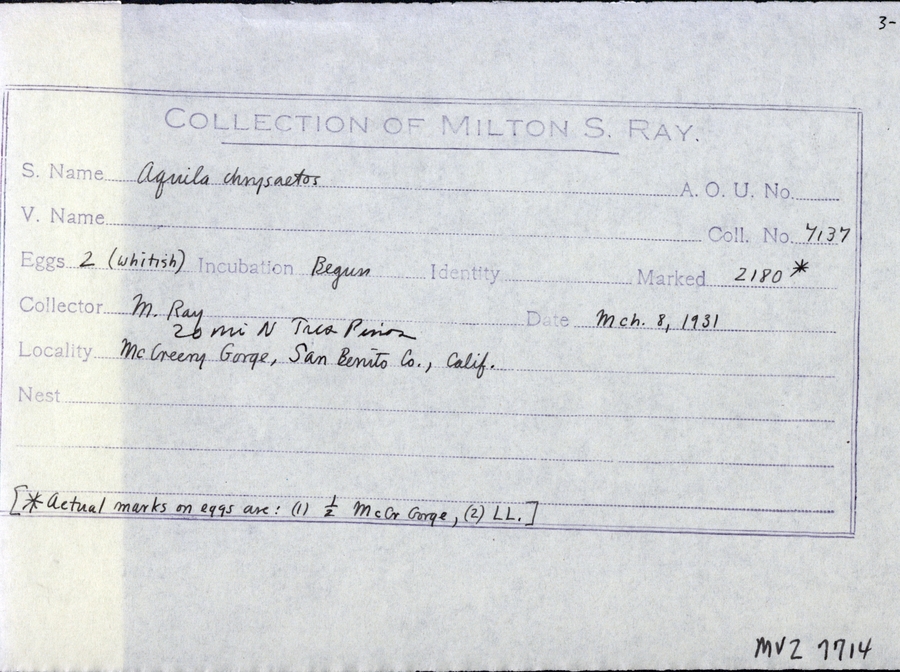 3-
COLLECTION OF MILTON S. RAY.
S. Name Aquila chrysaetos A. O. U. No.
V. Name Coll. No. 7137
Eggs 2 (whitish) Incubation Begun Identity Marked 2180*
Collector M. Ray Date Mch. 8, 1931
20 mi N Tres Pinos
Locality McCreery Gorge, San Benito Co., Calif.
Nest
[* Actual marks on eggs are: (1) ½ McCr Gorge, (2) LL.]
MVZ 7714